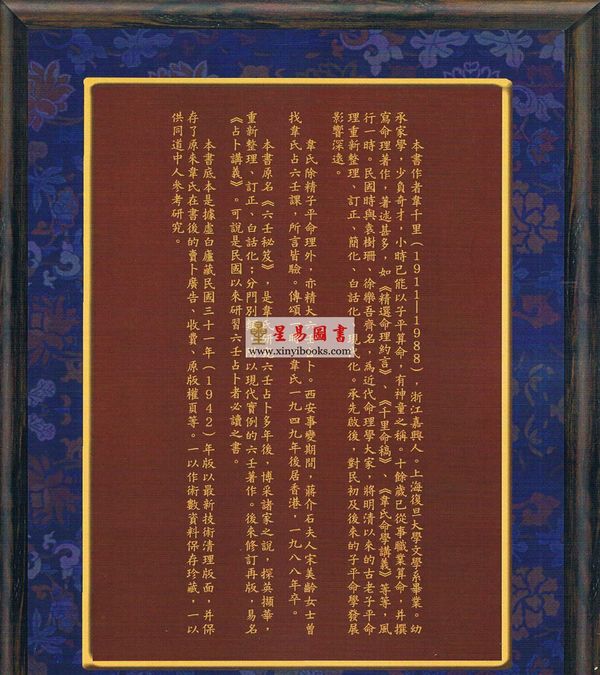 本書作者韋千里（1911—1988），浙江嘉興人。上海復旦大學文學系畢業。幼
承家學，少負奇才，小時已能以子平算命，有神童之稱。十餘歲已從事職業算命，并撰
寫命理著作，著述甚多，如《精選命理約言》、《千里命稿》、《韋氏命學講義》等等，風
行一時。民國時與袁樹珊、徐樂吾齊名，為近代命理學大家，將明清以來的古老子平命
理重新整理、訂正、簡化、白話化、現代化。承先啟後，對民初及後來的子平命學發展
影響深遠。
韋氏除精子平命理外，亦精大六壬占卜。西安事變期間，蔣介石夫人宋美齡女士曾
找韋氏占六壬課，所言皆驗。傳頌一時。韋氏一九四九年後居香港，一九八八年卒。
本書原名《六壬秘笈》，是韋氏研 六壬占卜多年後，博采諸家之說，探英擷華，
重新整理、訂正、白話化；分門別 以現代實例的六壬著作。後來修訂再版，易名
《占卜講義》。可說是民國以來研習六壬占卜者必讀之書。
本書底本是據虛白廬藏民國三十一年（1942）年版以最新技術清理版面，并保
存了原來韋氏在書後的賣卜廣告、收費、原版權頁等。一以作術數資料保存珍藏，一以
供同道中人參考研究。
星易圖書
www.xinyibooks.com